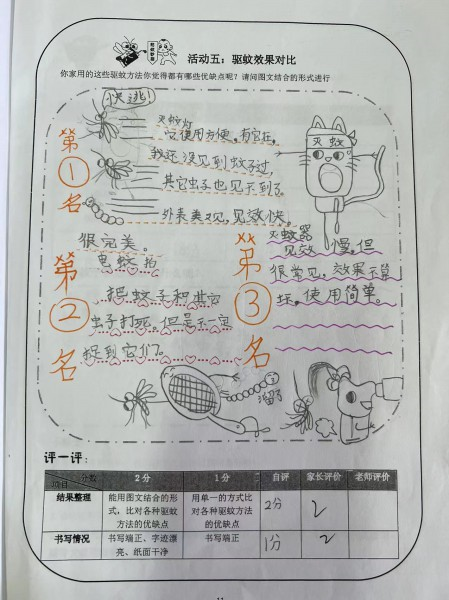 活动五：驱蚊效果对比
你家用的这些驱蚊方法你觉得都有哪些优缺点呢？请问图文结合的形式进行
快逃！
灭蚊灯
它使用方便，有它在，
我还没见到蚊子过，
其它虫子也见不到了。
外表美观，见效快。
很完美。
第①名
灭蚊
电蚊拍
把蚊子和其它
虫子打死，但是不一定
捉到它们。
第②名
灭蚊器
见效慢，但
很常见，效果不算
坏，使用简单。
第③名
溜了
评一评：
项目 分数 2分 1分 自评 家长评价 老师评价
结果整理 能用图文结合的形式，比对各种驱蚊方法的优缺点 用单一的方式比对各种驱蚊方法的优缺点 2分 2
书写情况 书写端正、字迹漂亮、纸面干净 书写端正 1分 2